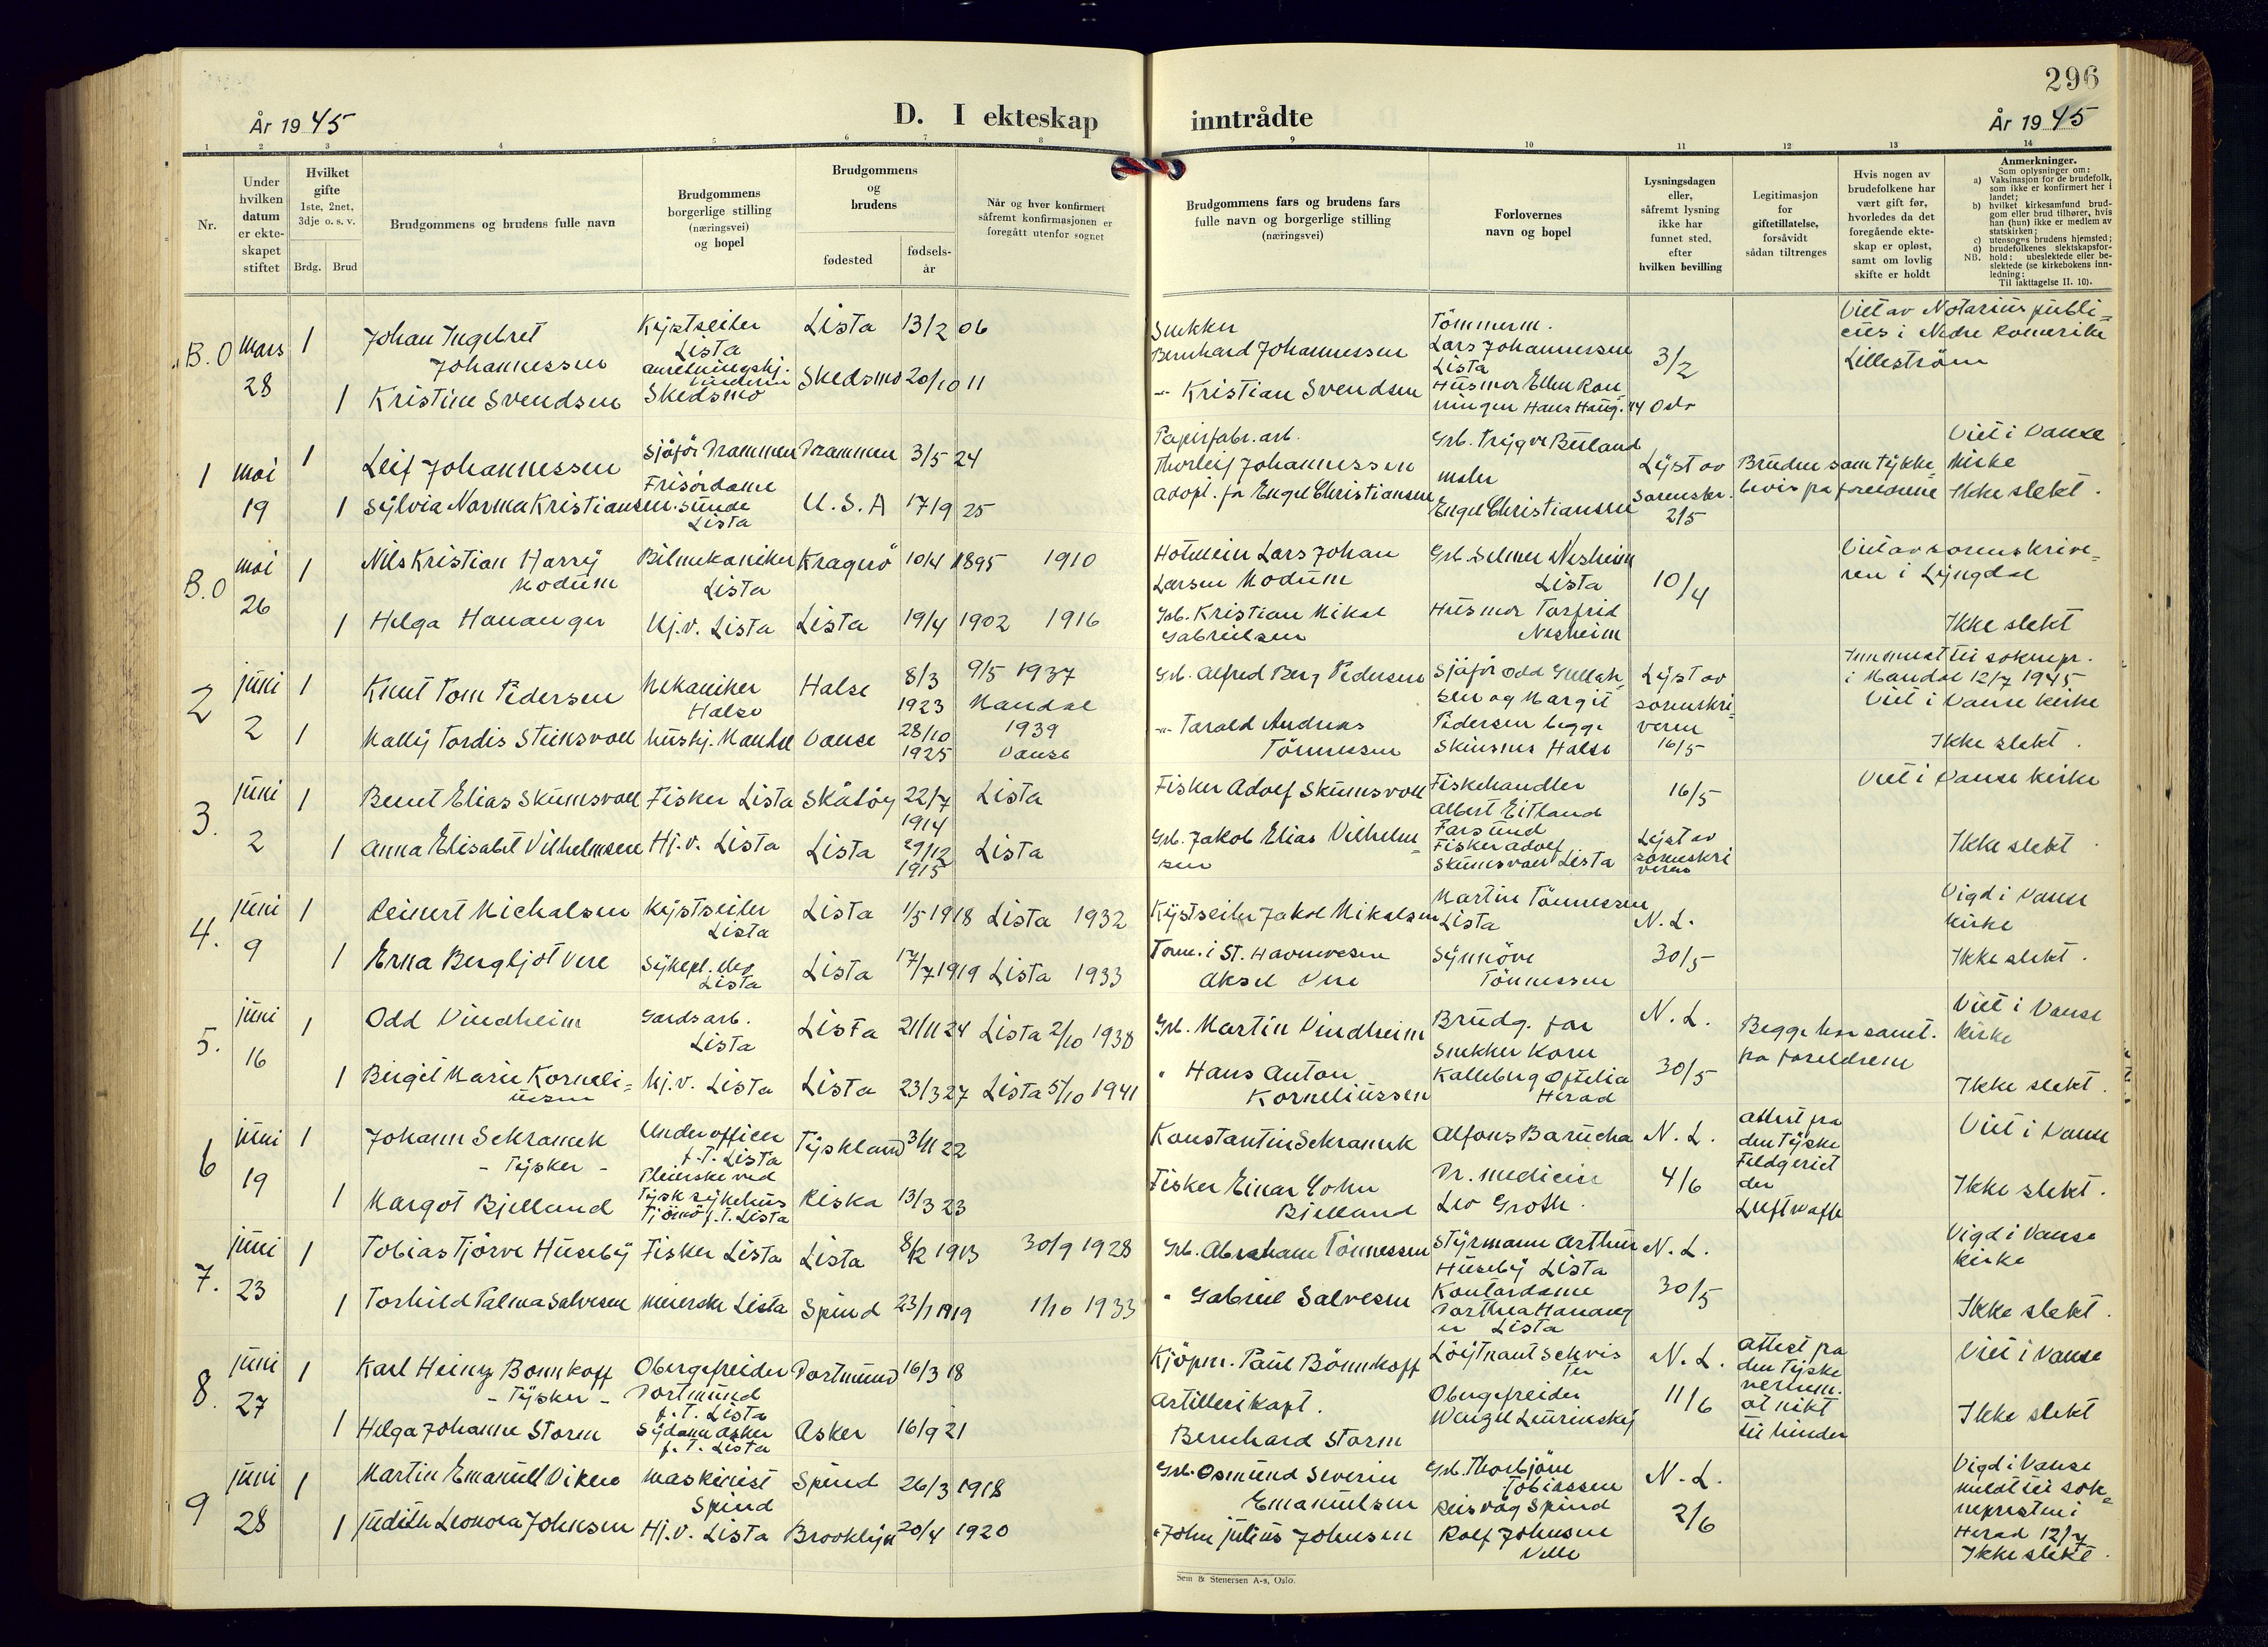 296
År 1945
D. I ekteskap inntrådte
År 1945
1 2 3 4 5 6 7 8 9 10 11 12 13 14
Nr.
Under
hvilken
datum
er ekte-
skapet
stiftet
Hvilket
gifte
1ste, 2net,
3dje o. s. v.
Brdg. Brud
Brudgommens og brudens fulle navn
Brudgommens
borgerlige stilling
(næringsvei)
og bopel
Brudgommens
og
brudens
fødested
fødsels-
år
Når og hvor konfirmert
såfremt konfirmasjonen er
foregått utenfor sognet
Brudgommens fars og brudens fars
fulle navn og borgerlige stilling
(næringsvei)
Forlovernes
navn og bopel
Lysningsdagen
eller,
såfremt lysning
ikke har
funnet sted,
efter
hvilken bevilling
Legitimasjon
for
giftetillatelse,
forsåvidt
sådan tiltrenges
Hvis nogen av
brudefolkene har
vært gift før,
hvorledes da det
foregående ekte-
skap er opløst,
samt om lovlig
skifte er holdt
Anmerkninger.
Som oplysninger om:
a) Vaksinasjon for de brudefolk,
som ikke er konfirmert her i
landet;
b) hvilket kirkesamfund brud-
gom eller brud tilhører, hvis
han (hun) ikke er medlem av
statskirken;
c) utensogns brudens hjemsted;
d) brudefolkenes slektskapsfor-
hold: ubeslektede eller be-
slektede (se kirkebokens inn-
ledning;
NB. Til iakttagelse II. 10).
B.O mars 28
1 Johan Ingebret
Johannessen
Kystseiler
Lista
Lista 13/2 06
Snekker
Bernhard Johannessen
Tömmerm.
Lars Johannessen
Lista
3/2
Viet av Notarius publi=
cus i Nedre Romerike
Lilleström
1 Kristine Svendsen
Skedsmo
Skedsmo 20/10 11
-"- Kristian Svendsen
Husmor Ellen Ron
ningen Hans Haug. 44 Oslo
1 mai 19
1 Leif Johannessen
Sjåför Drammen
Drammen 3/5 24
Papirfabr. arb.
Thorleif Johannessen
Grb. Trygve Briland
maler
Lyst av
sorenskr.
2/5
Bruden samtykke=
bevis fra foreldrene
Viet i Vanse
kirke
Ikke slekt.
1 Sylvia Norma Kristiansen
Frisördame
Sunde
Lista
U.S.A 17/9 25
Adopt. far Engel Christiansen
Engel Christiansen
B.O mai 26
1 Nils Kristian Harry
Modum
Bilmekaniker
Lista
Kragerö 10/4 1895 1910
Hotmein Lars Johan
Larsen Modum
Grb. Selmer Nesheim
Lista
10/4
Viet av sorenskrive=
ren i Lyngdal
Ikke slekt
1 Helga Hananger
Hj.v. Lista
Lista 19/4 1902 1916
Grb. Kristian Mikal
Gabrielsen
Husmor Torfrid
Nesheim
2 juni 2
1 Knut Tom Pedersen
Mekaniker
Halse
Halse 8/3 1923
9/5 1937
Mandal
Grb. Alfred Berg Pedersen
Sjåför Odd Gullak=
sen og Margit
Pedersen begge
Skinsnes Halse
Lyst av
sorenskri=
veren
16/5
Innmeldt til soknepr.
i Mandal 12/7 1945
Viet i Vanse kirke
Ikke slekt.
1 Mally Tordis Steinsvoll
hushj. Mandal
Vanse 28/10 1925
1939
Vanse
-"- Tarald Andreas
Tönnessen
3. juni 2
1 Bernt Elias Skumsvoll
Fisker Lista
Skåtöy 22/7 1914
Lista
Fisker Adolf Skumsvoll
Fiskehandler
Albert Eitland
Farsund
16/5
Viet i Vanse kirke
1 Anna Elisabet Vilhelmsen
Hj.v. Lista
Lista 29/12 1915
Lista
Grb. Jakob Elias Vilhelm=
sen
Fisker Adolf
Skumsvoll Lista
Lyst av
sorenskri
veren
Ikke slekt
4. juni 9
1 Reinert Michalsen
Kystseiler
Lista
Lista 1/5 1918 Lista 1932
Kystseiler Jakob Mikalsen
Martin Tönnessen
Lista
N.L.
30/5
Vigd i Vanse
kirke
Ikke slekt.
1 Erna Bergljot Vere
Sykepl. elev
Lista
Lista 17/7 1919 Lista 1933
Torm. i St. Havnvesen
Aksel Vere
Synnöve
Tönnessen
5. juni 16
1 Odd Vindheim
Gårdsarb.
Lista
Lista 21/11 24 Lista 2/10 1938
Grb. Martin Vindheim
Brudg. far
N.L.
30/5
Begge har samt.
fra foreldrene
Viet i Vanse
kirke
Ikke slekt.
1 Birgit Marie Korneli=
ussen
Hj.v. Lista
Lista 23/3 27 Lista 5/10 1941
" Hans Anton
Korneliussen
Snekker Korn
Kalleberg Oftelia
Herad
6 juni 19
1 Johann Sekranek
- Tysker -
Underofficer
f.T. Lista
Tyskland 3/11 22
Konstantin Sekranek
Alfons Barucha
N.L.
4/6
Attest fra
den Tyske
Feldgeriet
der
Luftwaffe
Viet i Vanse
Ikke slekt.
1 Margot Bjelland
Pleierske ved
Tysk sykehus
Tjömö f.T. Lista
Riska 13/3 23
Fisker Einar John
Bjelland
Dr. medicin
Leo Groth.
7. juni 23
1 Tobias Tjörve Huseby
Fisker Lista
Lista 8/12 1913 30/9 1928
Grb. Abraham Tönnessen
Styrmann Arthur
Huseby Lista
N.L.
30/5
Vigd i Vanse
kirke
Ikke slekt.
1 Torhild Palma Salvesen
meierske Lista
Spind 23/1 1919 1/10 1933
" Gabriel Salvesen
Kontordame
Dorthea Hanang
er Lista
8. juni 27
1 Karl Heinz Bonnkoff
- Tysker -
Obergefreider
Dortmund
f.T. Lista
Dortmund 16/3 18
Kjöpm. Paul Bönnkoff
Löytnant Schvis
ter
N.L.
11/6
Attest fra
den Tyske
verhm.
at nikt
til hinder
Viet i Vanse
Ikke slekt
1 Helga Johanne Storm
Sydame Asker
f.T. Lista
Asker 16/9 21
Artillerikapt.
Bernhard Storm
Obergefreider
Wenzel Leurinsky
9 juni 28
1 Martin Emanuel Viken
maskinist
Spind
Spind 26/3 1918
Grb. Osmund Severin
Emanuelsen
Grb. Thorbjörn
Tobiassen
Reisvåg Spind
N.L.
2/6
Vigd i Vanse
meldt til sok=
nepresten i
Herad 12/7
Ikke slekt.
1 Judith Leonora Johnsen
Hj.v. Lista
Brooklyn 20/4 1920
" John Julius Johnsen
Rolf Johnsen
Velle
Sem & Stenersen A-s, Oslo.